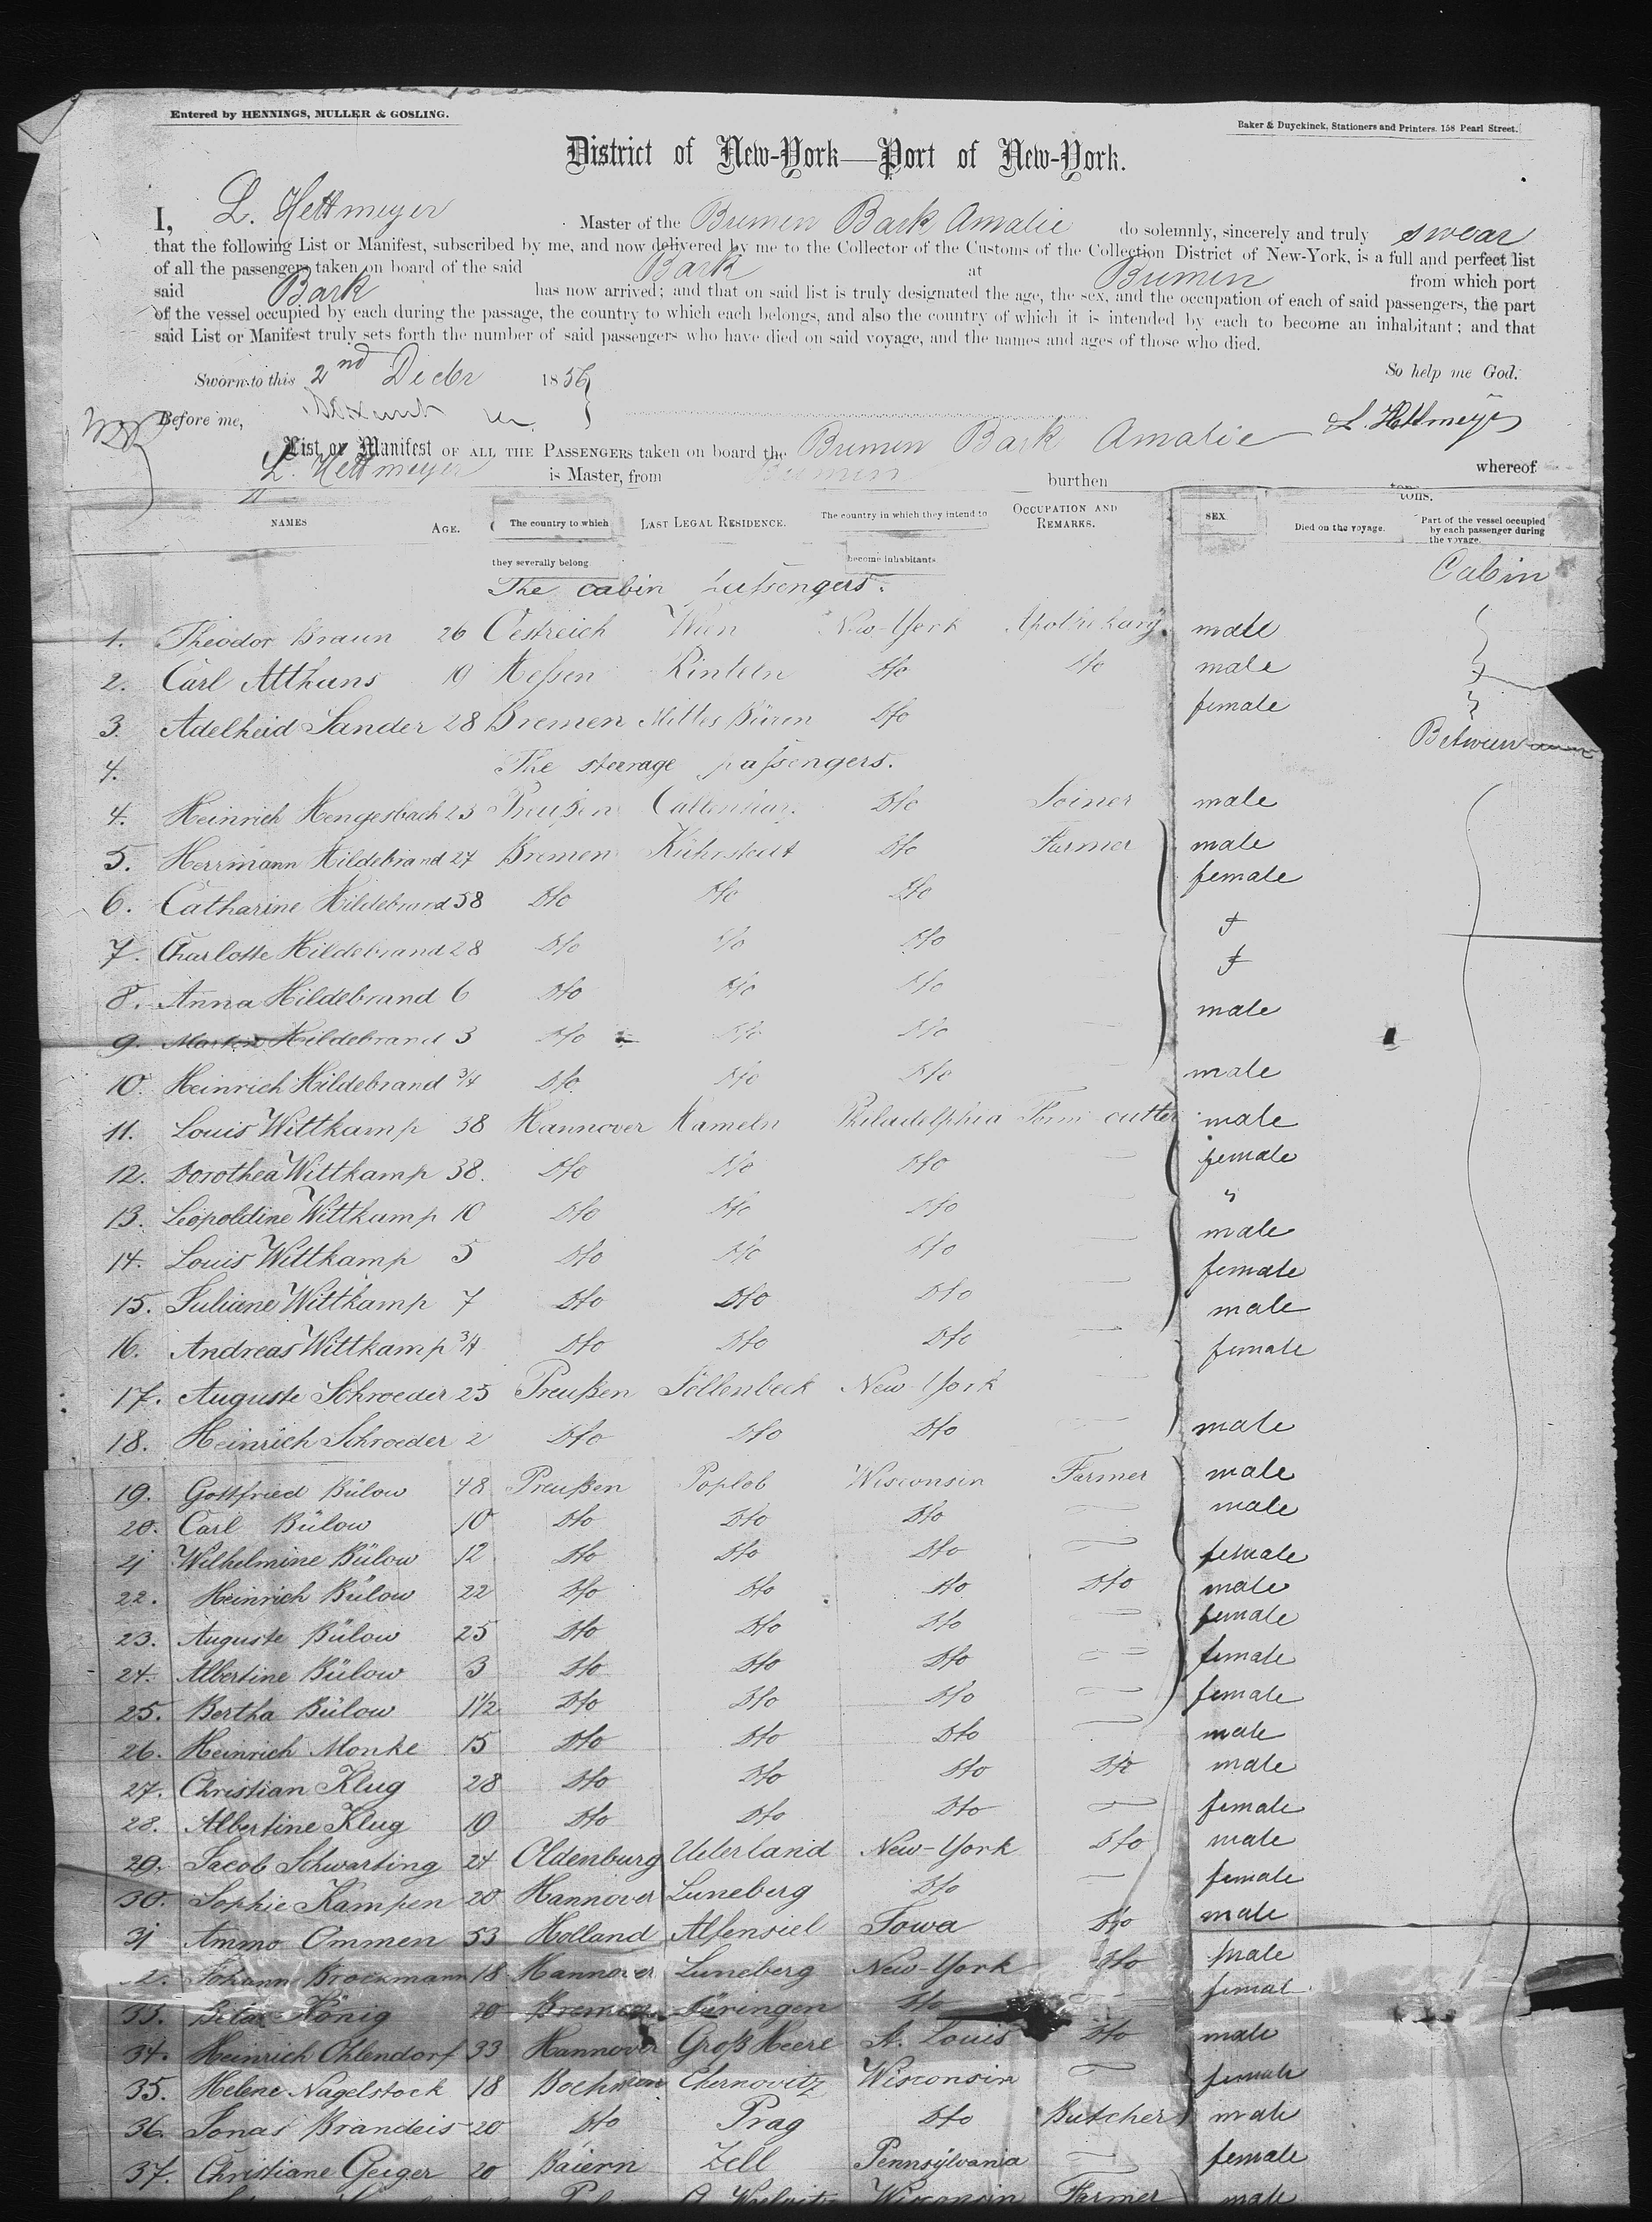 Entered by HENNINGS, MULLER & GOSLING.
Baker & Duyckinck, Stationers and Printers. 158 Pearl Street.
District of New-York—Port of New-York.
I, L. Hettmeyer Master of the Bremen Bark Amalie do solemnly, sincerely and truly swear
that the following List or Manifest, subscribed by me, and now delivered by me to the Collector of the Customs of the Collection District of New-York, is a full and perfect list
of all the passengers taken on board of the said Bark at Bremen from which port
said Bark has now arrived; and that on said list is truly designated the age, the sex, and the occupation of each of said passengers, the part
of the vessel occupied by each during the passage, the country to which each belongs, and also the country of which it is intended by each to become an inhabitant; and that
said List or Manifest truly sets forth the number of said passengers who have died on said voyage, and the names and ages of those who died.
Sworn to this 2nd Decbr 1856 So help me God.
Before me, L. Hettmeyer
List or Manifest OF ALL THE PASSENGERS taken on board the Bremen Bark Amalie whereof
L. Hettmeyer is Master, from Bremen burthen tons.
NAMES AGE. The country to which they severally belong LAST LEGAL RESIDENCE. The country in which they intend to become inhabitants OCCUPATION AND REMARKS. SEX. Died on the voyage. Part of the vessel occupied by each passenger during the voyage.
The cabin passengers. Cabin
1. Theodor Braun 26 Oestreich Wien New-York male
2. Carl Althans 19 Hessen Rinteln Dto Dto male
3. Adelheid Sander 28 Bremen Büren Dto female
Between
4. The steerage passengers.
4. Heinrich Hengesbach 23 Preußen Dto Joiner male
5. Herrmann Hildebrand 27 Bremen Kührstedt Dto Farmer male
6. Catharine Hildebrand 58 Dto Dto Dto female
7. Charlotte Hildebrand 28 Dto Dto Dto f
8. Anna Hildebrand 6 Dto Dto Dto f
9. Hildebrand 3 Dto Dto Dto male
10. Heinrich Hildebrand 3/4 Dto Dto Dto male
11. Louis Wittkamp 38 Hannover Hameln Philadelphia cutter male
12. Dorothea Wittkamp 38. Dto Dto Dto female
13. Leopoldine Wittkamp 10 Dto Dto Dto "
14. Louis Wittkamp 5 Dto Dto Dto male
15. Juliane Wittkamp 7 Dto Dto Dto female
16. Andreas Wittkamp 3/4 Dto Dto Dto male
17. Auguste Schroeder 25 Preußen Jöllenbeck New-York female
18. Heinrich Schroeder 2 Dto Dto Dto male
19. Gottfried Bülow 48 Preußen Poplob Wisconsin Farmer male
20. Carl Bülow 10 Dto Dto Dto male
21 Wilhelmine Bülow 12 Dto Dto Dto female
22. Heinrich Bülow 22 Dto Dto Dto Dto male
23. Auguste Bülow 25 Dto Dto Dto female
24. Albertine Bülow 3 Dto Dto Dto female
25. Bertha Bülow 1 1/2 Dto Dto Dto female
26. Heinrich Monke 15 Dto Dto Dto male
27. Christian Klug 28 Dto Dto Dto Dto male
28. Albertine Klug 19 Dto Dto Dto female
29. Jacob Schwarting 24 Oldenburg Ueterland New-York Dto male
30. Sophie Kampen 20 Hannover Luneberg Dto female
31 Ammo Ommen 53 Holland Alfensiel Iowa Dto male
2. Johann Brockmann 18 Hannover Luneberg New-York Dto male
33. Beta König 20 Bremen Düringen Dto femal
34. Heinrich Ohlendorf 33 Hannover Groß Heere St. Louis Dto male
35. Helene Nagelstock 18 Boehmen Chernovitz Wisconsin female
36. Jonas Brandeis 20 Dto Prag Dto Butcher male
37. Christiane Geiger 20 Baiern Zell Pennsylvania female
Wisconsin Farmer male